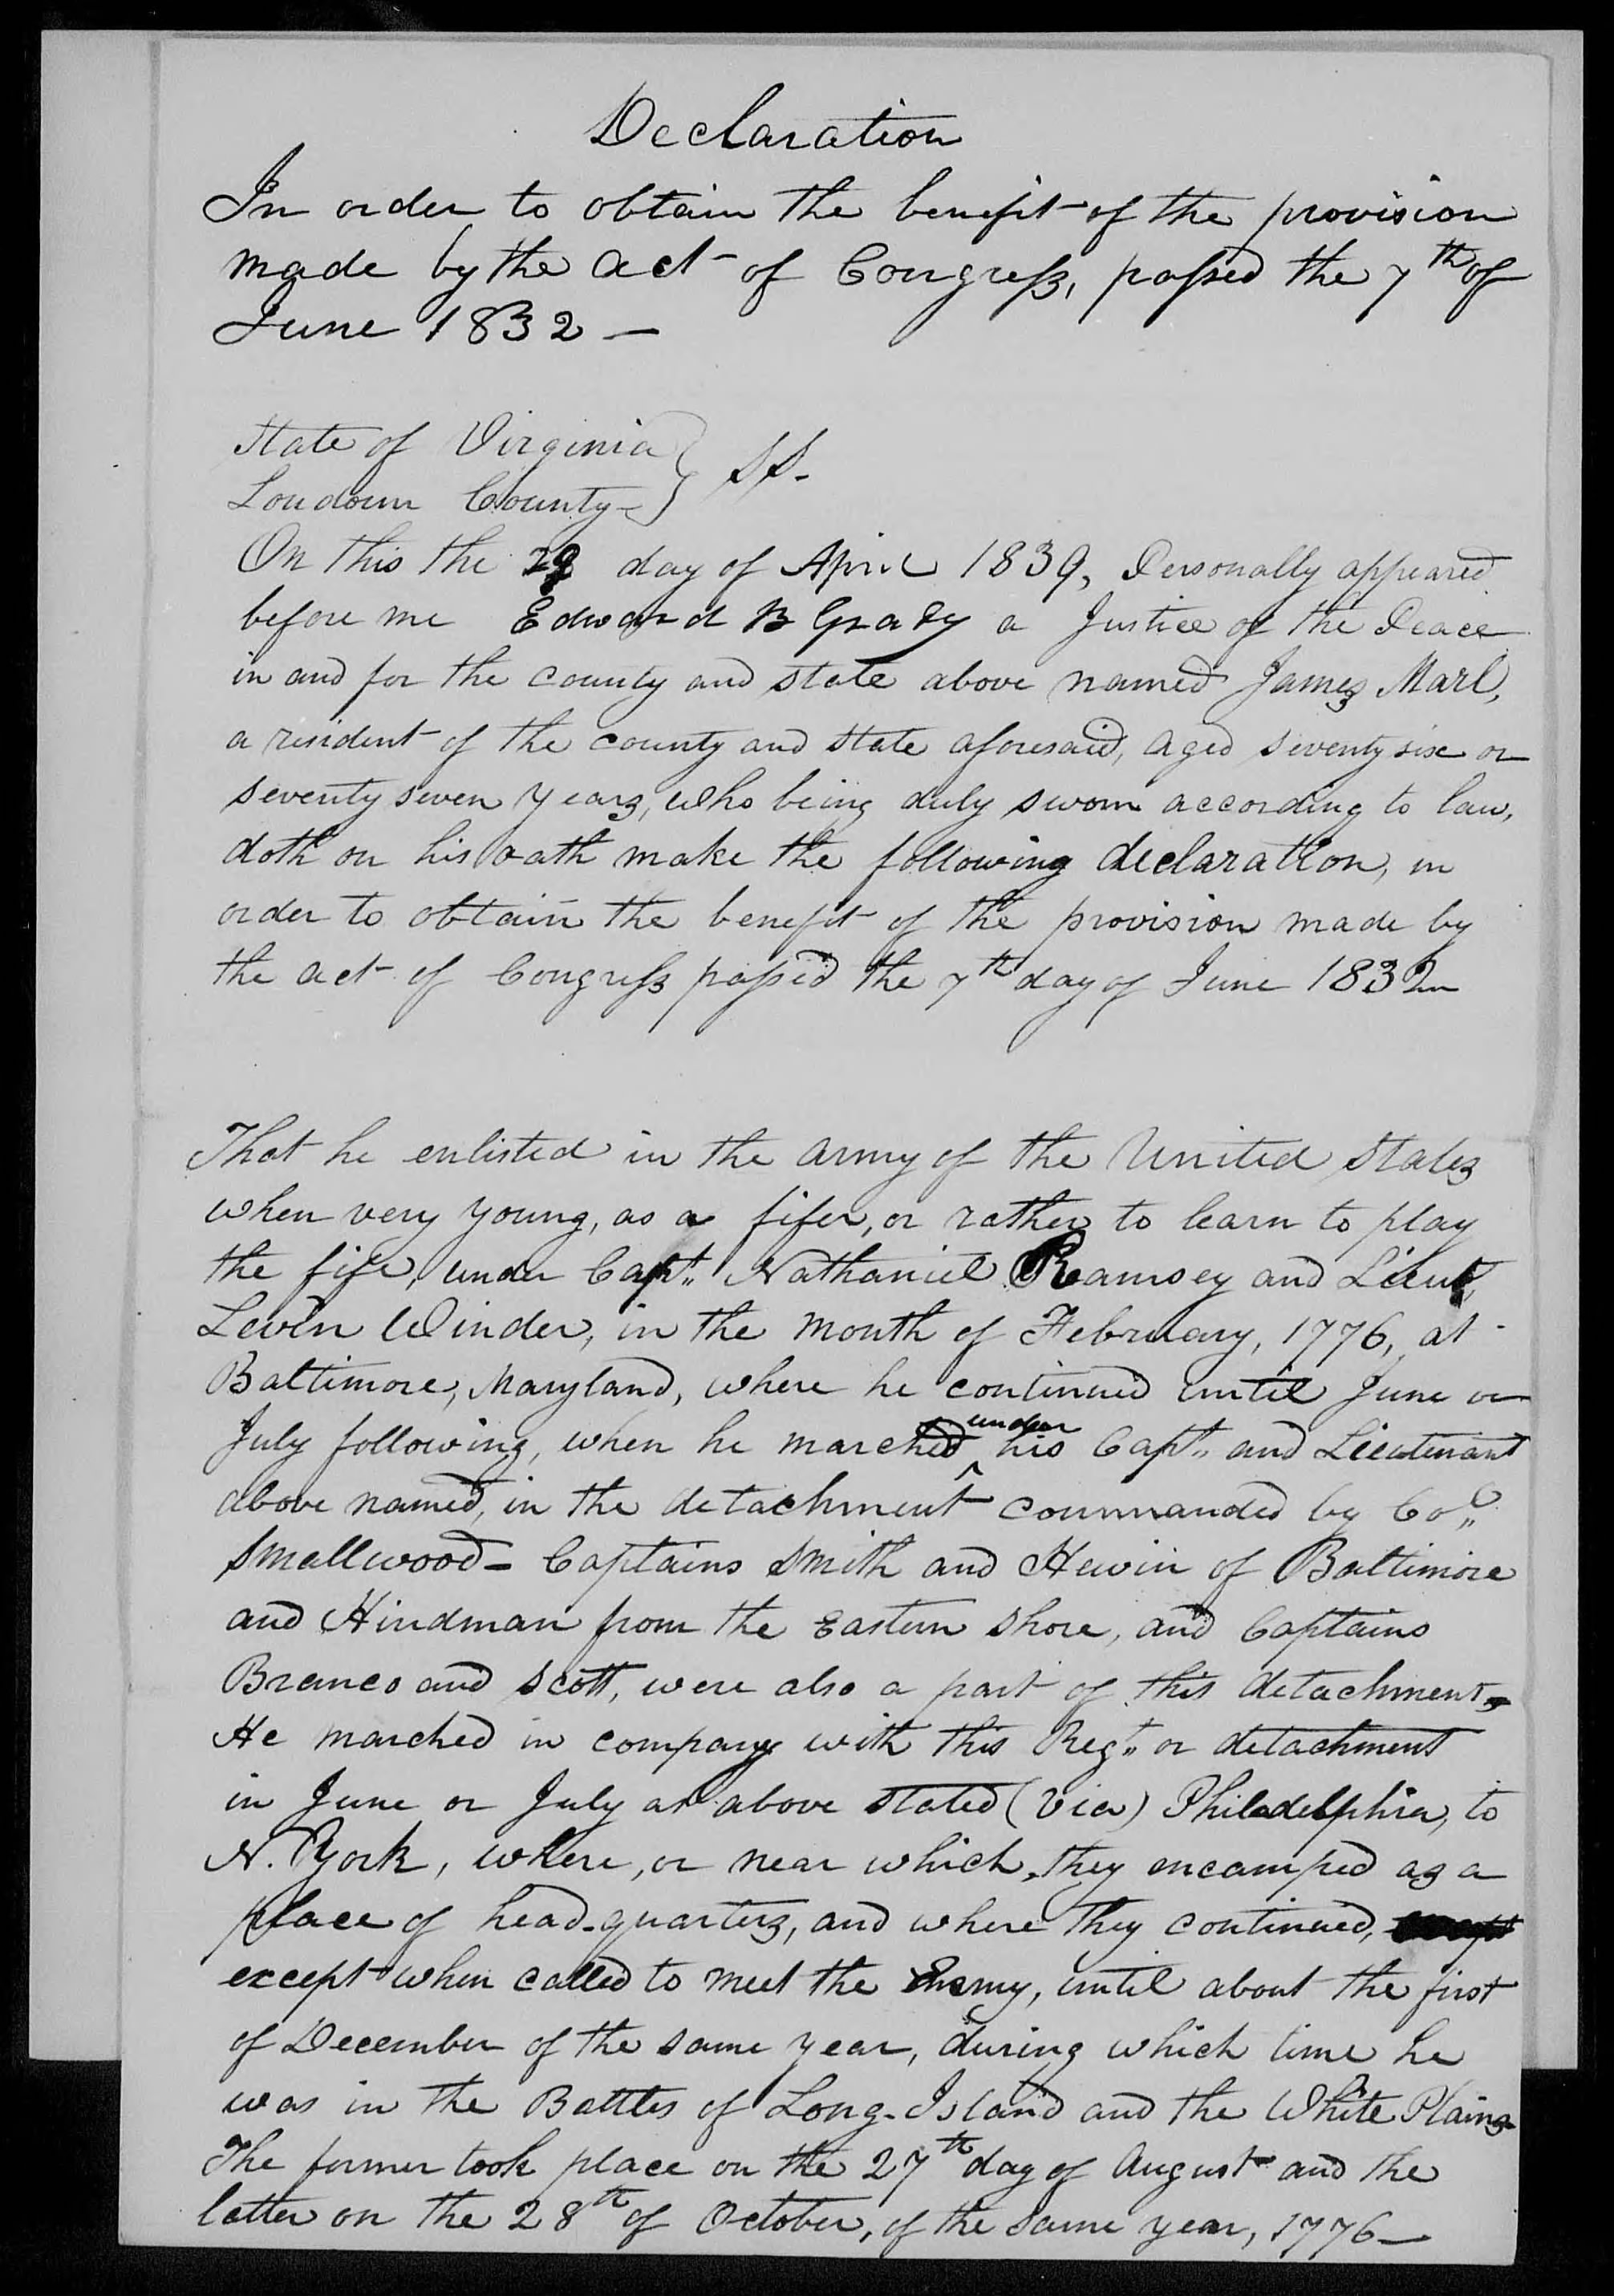 Declaration
In order to obtain the benefit of the provision
made by the act of Congress, passed the 7th of
June 1832 —
State of Virginia } SS.
Loudoun County }
On this the 29 day of April 1839, Personally appeared
before me Edward B Grady a Justice of the Peace
in and for the county and state above named James Marl,
a resident of the county and state aforesaid, aged seventy six or
seventy seven years, who being duly sworn according to law,
doth on his oath make the following declaration, in
order to obtain the benefit of the provision made by
the act of Congress passed the 7th day of June 1832
That he enlisted in the army of the United States
when very young, as a fifer, or rather to learn to play
the fife, under Capt. Nathaniel Ramsey and Lieut.
Levin Winder, in the month of February, 1776, at
Baltimore, Maryland, where he continued until June or
July following, when he marched under his Capt. and Lieutenant
above named, in the detachment commanded by Col.
Smallwood - Captains Smith and Hewin of Baltimore
and Hindman from the Eastern shore, and Captains
Branco and Scott, were also a part of this detachment -
He marched in company with this Regt. or detachment
in June or July as above stated (via) Philadelphia, to
N. York, where, or near which, they encamped as a
place of head-quarters, and where they continued,
except when called to meet the Enemy, until about the first
of December of the same year, during which time he
was in the Battles of Long-Island and the White Plains
The former took place on the 27th day of August and the
latter on the 28th of October, of the same year, 1776 —